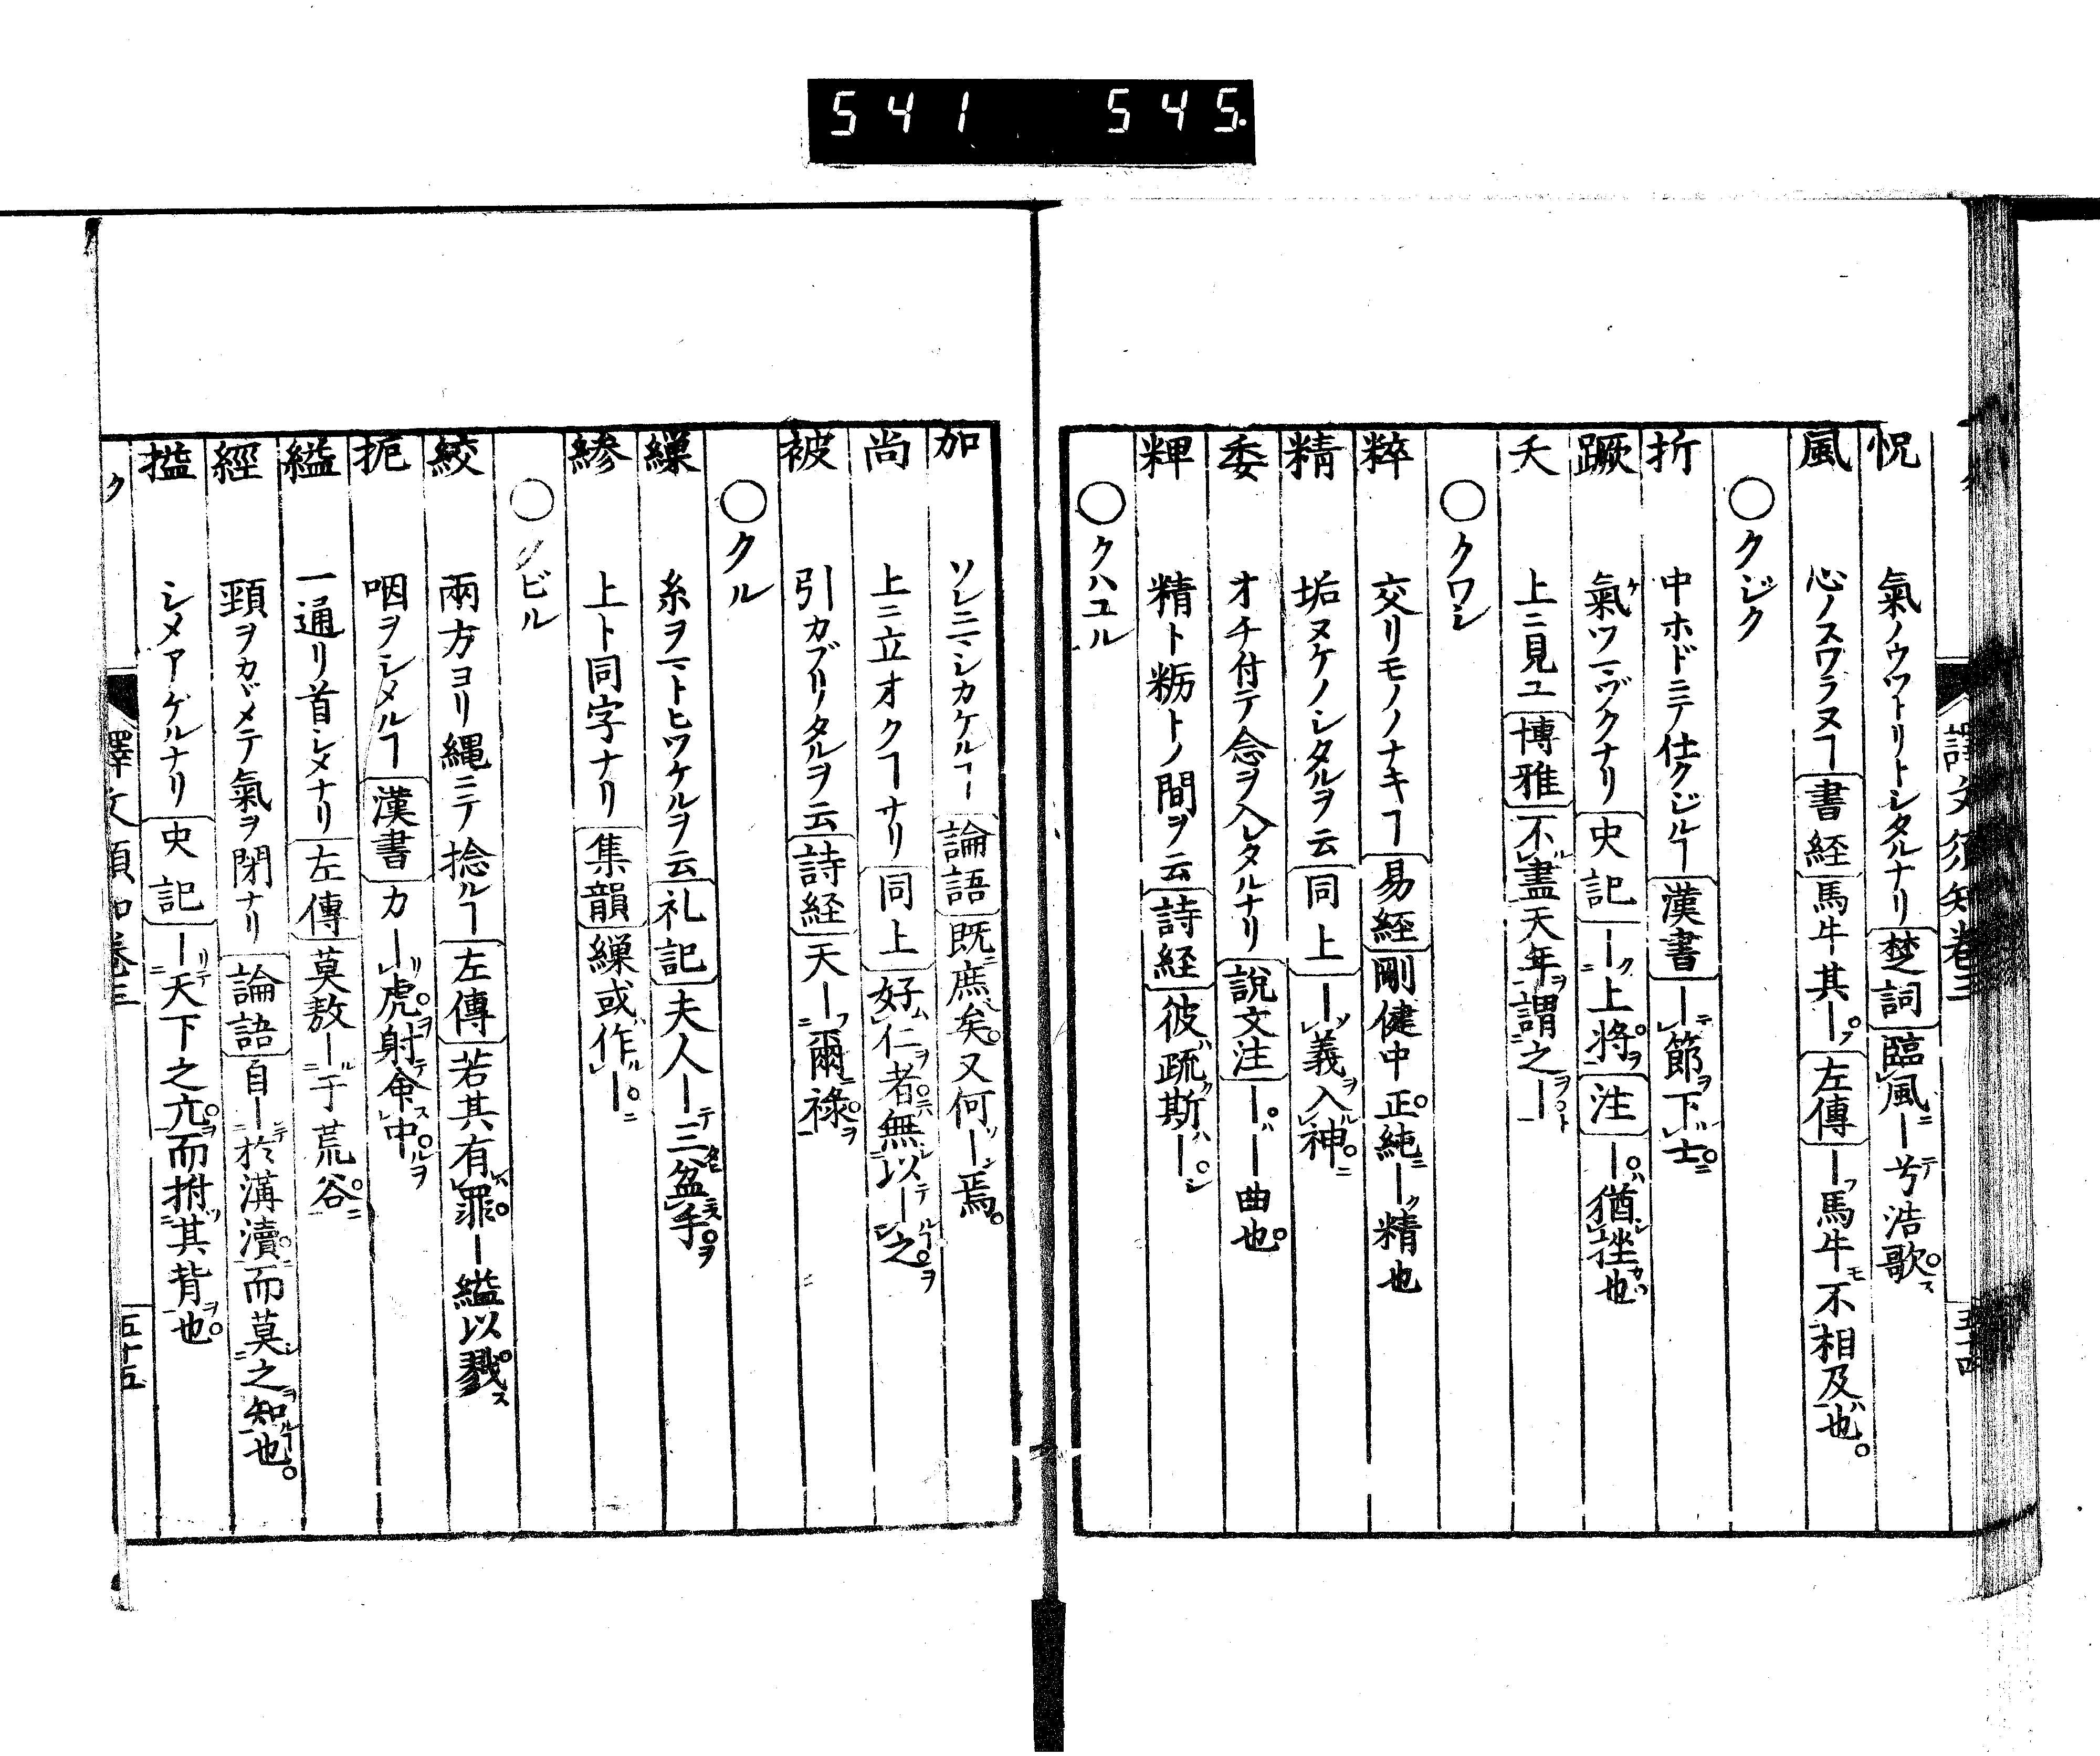 541 545.
譯文須知卷三 五十四
怳 氣ノウットリトシタルナリ 楚詞 臨風ー兮浩歌
風 心ノスワラヌヿ 書経 馬牛其ー 左傳 ー馬牛不相及也
○クジク
折 中ホドニテ仕クジルヿ 漢書 ー節下士
蹶 氣ツマヅクナリ 史記 ー上將 注 ー猶挫也
夭 上ニ見ユ 博雅 不盡天年謂之ー
○クワシ
粹 交リモノノナキヿ 易経 剛健中正純ー精也
精 垢ヌケノシタルヲ云 同上 ー義入神
委 オチ付テ念ヲ入レタルナリ 說文注 ーー曲也
粺 精ト粝トノ間ヲ云 詩経 彼疏斯ー
○クハユル
加 ソレニマシカケルヿ 論語 既庶矣又何ー焉
尚 上ニ立オクヿナリ 同上 好仁者無以ー之
被 引カブリタルヲ云 詩経 天ー爾祿
○クル
繅 糸ヲマトヒツケルヲ云 礼記 夫人ー三盆手
縿 上ト同字ナリ 集韻 繅或作ー
○クビル
絞 兩方ヨリ縄ニテ捻ルヿ 左傳 若其有罪ー縊以戮
扼 咽ヲシメルヿ 漢書 力ー虎射命中
縊 一通リ首シメナリ 左傳 莫敖ー于荒谷
經 頸ヲカヾメテ氣ヲ閉ナリ 論語 自ー於溝瀆而莫之知也
搤 シメアゲルナリ 史記 ー天下之亢而拊其背也
ク 譯文須知卷三 五十五